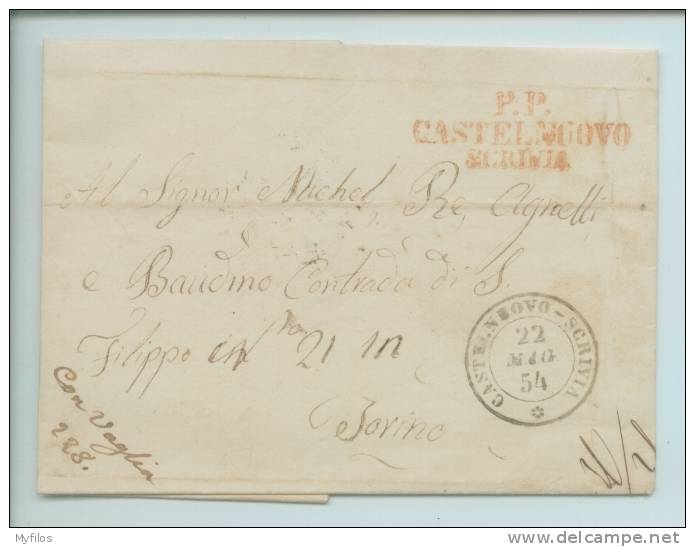 P. P.
CASTELNUOVO
SCRIVIA
Al Signor Michel, Re, Agnelli
e Baudino Contrada di S.
Filippo in N.ro 21 in
Torino
CASTELNUOVO-SCRIVIA
22
MAG.
54
Con Vaglia
228.
Myfilos
delcampe.net